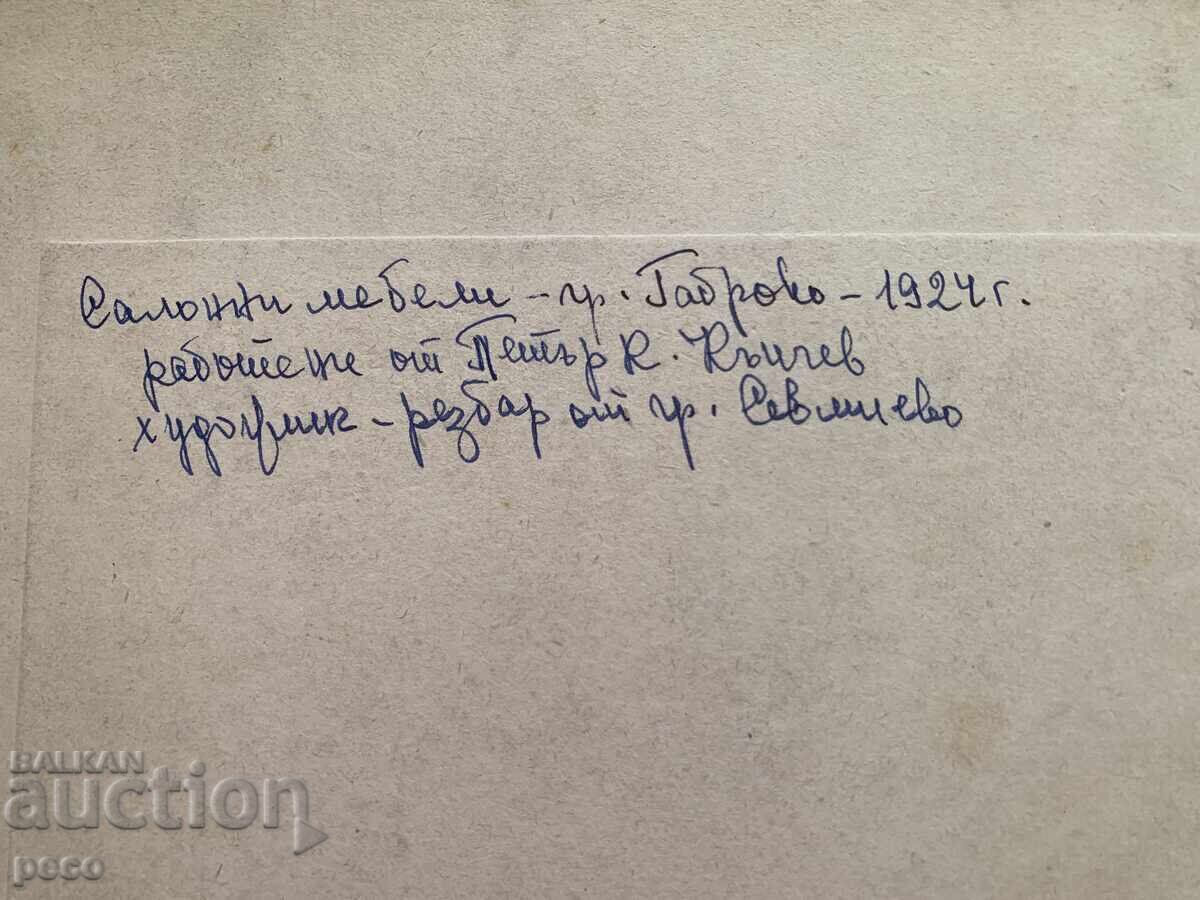 Салонни мебели – гр. Габрово – 1924 г.
работени от Петър К. Кънчев
художник – резбар от гр. Севлиево
BALKAN
auction
peco